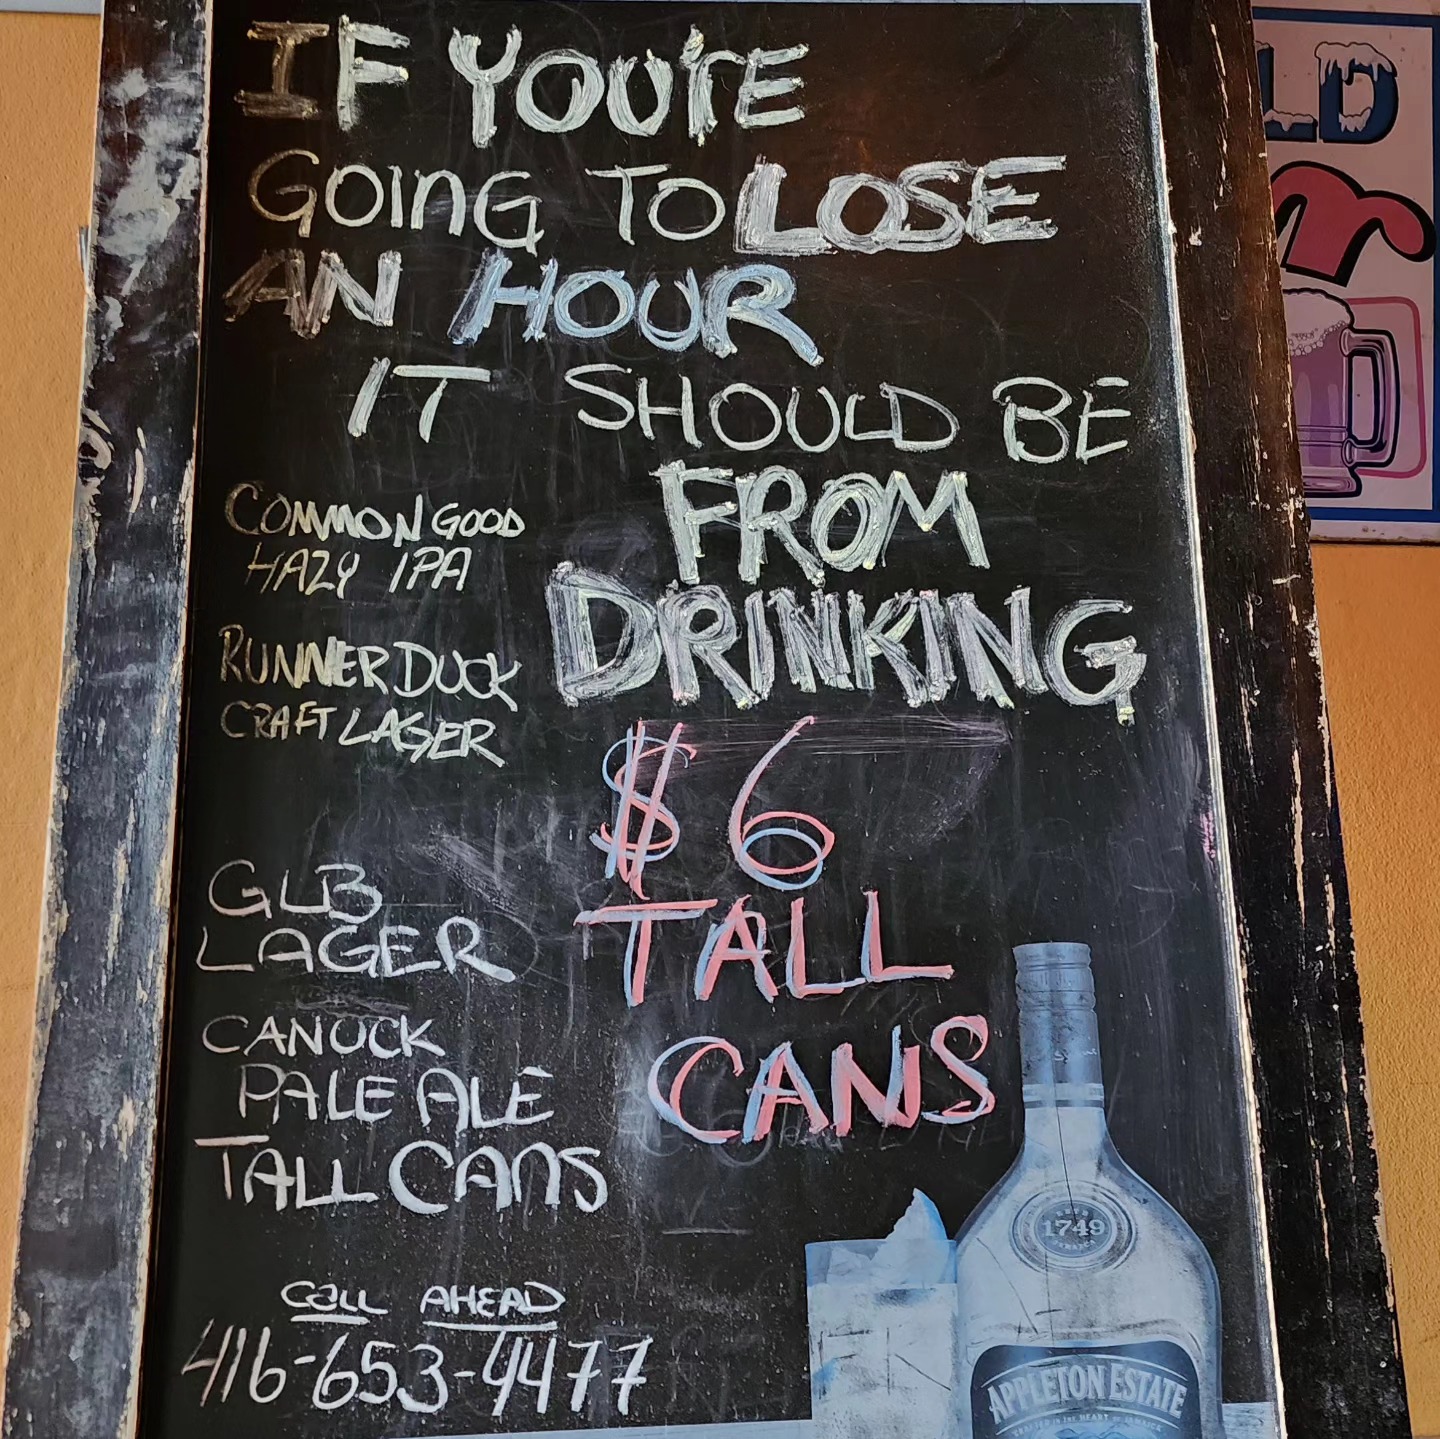 IF YOU'rE
GOInG TO LOSE
AN HOUR
IT SHOULD BE
FROM
DRINKING
$6
TALL
CANS
COMMON GOOD
HAZY IPA
RUNNER DUCK
CRAFT LAGER
GLB
LAGER
CANUCK
PALE ALE
TALL CANS
CALL AHEAD
416-653-4477
1749
APPLETON ESTATE
LD